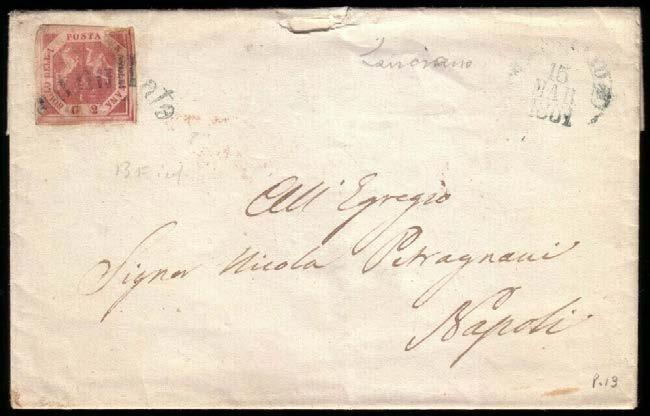 POSTA
BOLLO DELLA
G 2
ANNULLATO
Lanciano
15
MAR
1861
BF inf.
All' Egregio
Signor Nicola Petragnani
Napoli
P.19